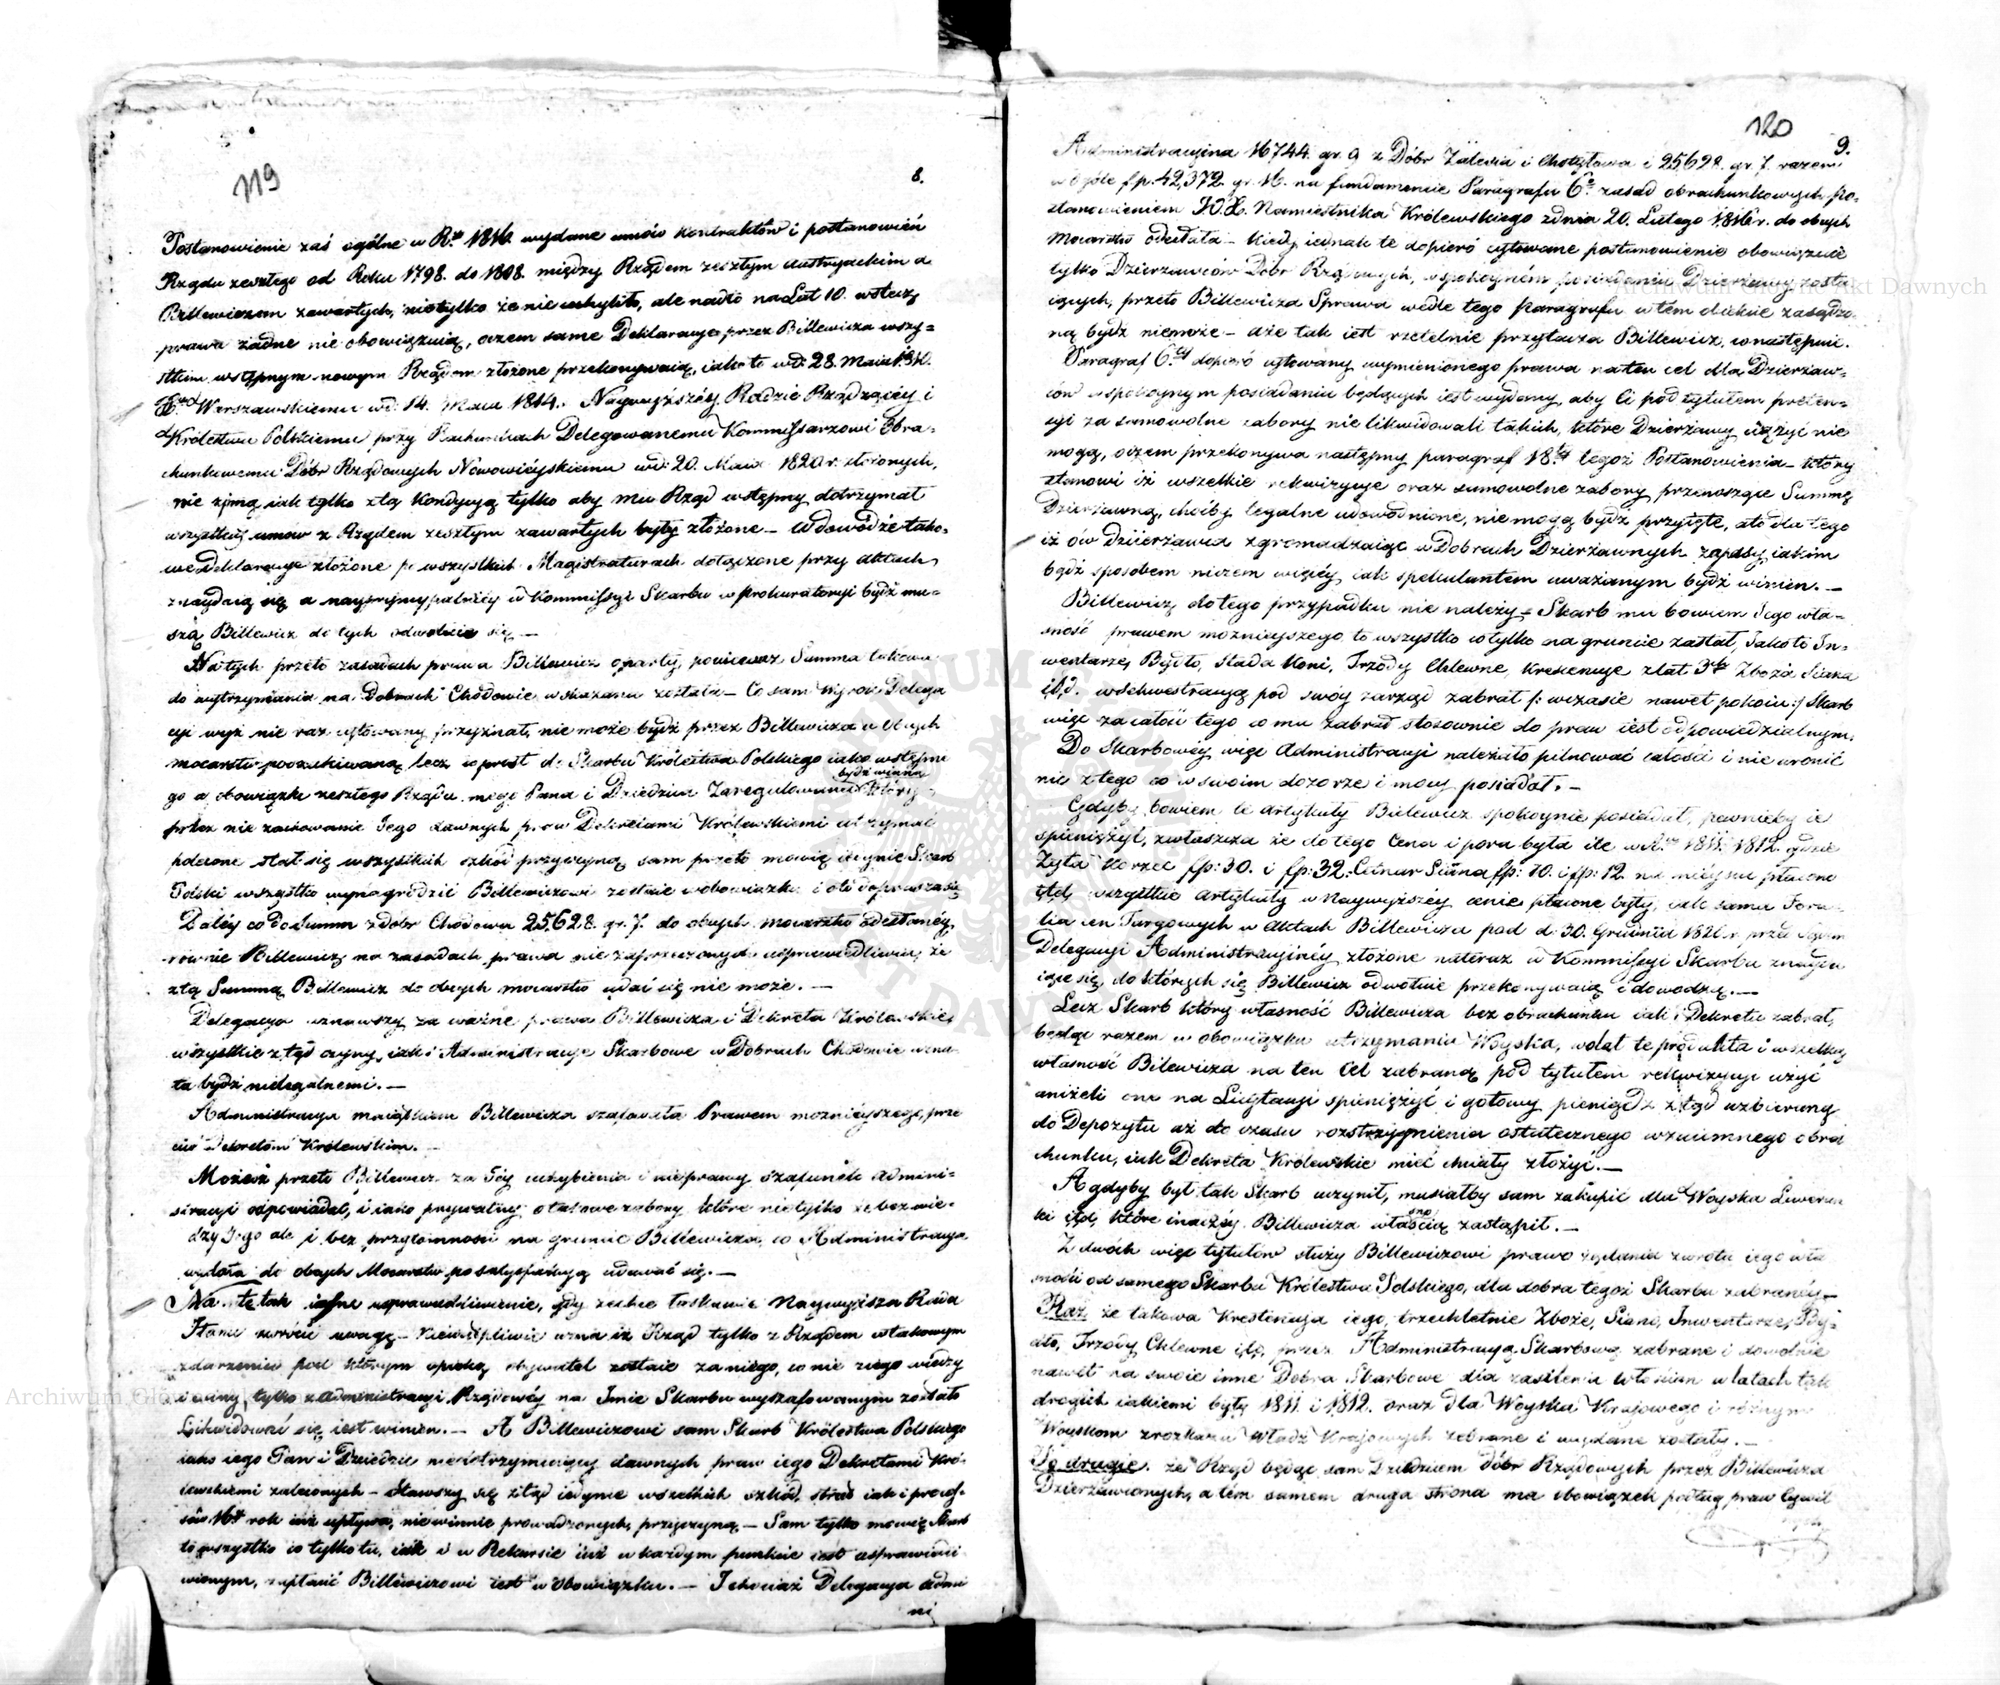 119
8.
Postanowienie zaś ogólne w Rku 1816. wydane umów kontraktów i postanowień
Rządu zeszłego od Roku 1798. do 1808. między Rządem zeszłym Austryackim a
Billewiczem zawartych, nietylko że nie uchyliło, ale nadto na Lat 10. wstecz
prawa żadne nie obowiązuią, oczem same Deklaracye przez Billewicza wszy-
stkim wstępnym nowym Rządom złożone przekonywaią, iako to w d: 28. Maia
Warszawskiemu w d: 14. Maia 1814. Naywyższéy Radzie Rządzącéy i
Królestwu Polskiemu przy Rachunkach Delegowanemu Kommissarzowi Obra-
chunkowemu Dóbr Rządowych Nowowieyskiemu w d: 20. Maia 1820 r. złożonych,
nie z inną iak tylko z tą Kondycyą tylko aby mu Rząd wstępny dotrzymał
wszystkich umow z Rządem zeszłym zawartych były złożone – W dowód że tako-
we Deklaracye złożone po wszystkich Magistraturach dołączone przy Aktach
znayduią się a nayprzyzwoiciéy w Kommissyi Skarbu w Prokuratoryi bydź mu-
szą Billewicz do tych odwołuie się. –
Na tych przeto zasadach prawa Billewicz oparty, ponieważ Summa takowa
do wytrzymania na Dobrach Chodowie wskazana została – Co sam wyrok Delega
cyi wyż nie raz cytowany przyznał, nie może bydź przez Billewicza u Obcych
mocarstw poszukiwaną lecz wprost do Skarbu Królestwa Polskiego iako wstępne
bydź winna
go a obowiązki zeszłego Rządu, mego Pana i Dziedzica Zaregulowana który
przez nie zachowanie Jego dawnych praw Dekretami Królewskiemi utrzymać
polecone stał się wszystkich szkód przyczyną sam przeto mowię iedynie Skarb
Polski wszystko wynagrodzić Billewiczowi zostaie w obowiązku i o to doprasza się
Daléy co do Summ z dóbr Chodowa 25,628. gr. 7. do obcych mocarstw odesłanéy,
równie Billewicz na zasadach prawa nie zaprzeczonych usprawiedliwia, że
z tą Summą Billewicz do obcych mocarstw udać się nie może. –
Delegacya uznawszy za ważne prawa Billewicza i Dekreta Królewskie,
wszystkie ztąd czyny, iako i Administracye Skarbowe w Dobrach Chodowie uzna-
ła bydź nielegalnemi. –
Administracya maiątkiem Billewicza szafowała Prawem moznieyszego, prze
ciw Dekretom Królewskim. –
Możesz przeto Billewicz za Jéy uchybienia i nieprawy szafunek Admini-
stracyi odpowiadać, i iako prywatny o takowe zabory, które nie tylko że bez wie-
dzy Jego ale i bez przytomności na gruncie Billewicza, co Administracya
wydała do obcych Mocarstw po satysfakcyą udawać się. –
Na te tak iasne usprawiedliwienie, gdy zechce łaskawie Naywyższa Rada
Stanu zwrócić uwagę – Niewątpliwie uzna iż Rząd tylko z Rządem w takowym
zdarzeniu pod którym opieką obywatel zostaie za niego, co nie z iego wiedzy
i winy, tylko z Administracyi Rządowéy na Imie Skarbu wyszafowanym zostało
Likwidować się iest winien. – A Billewiczowi sam Skarb Królestwa Polskiego
iako iego Pan i Dziedzic nieutrzymuiący dawnych praw iego Dekretami Kró-
lewskiemi zaleconych – Stawszy się ztąd iedynie wszelkich szkód, strat iak i proces-
sów 16ty rok iuż upływa, niewinnie prowadzonych, przyczyną. – Sam tylko mowię Skarb
to wszystko co tylko tu, iak i w Rekursie iuż w każdym punkcie iest usprawiedli
wionym, zapłacić Billewiczowi iest w obowiązku. – I chociaż Delegacya Admi
ni
120
9.
Administracyina 16744. gr. 9 z Dóbr Zalesia i Chotyłowa i 25628. gr. 7. razem
w ogóle fp. 42,372. gr. 16. na fundamencie Paragrafu 6o zasad obrachunkowych Po-
stanowieniem J.O.X. Namiestnika Królewskiego z dnia 20. Lutego 1816 r. do obcych
Mocarstw odesłała – Kiedy iednak te dopiero cytowane postanowienie obowiązuie
tylko Dzierżawców Dóbr Rządowych, w spokoyném posiadaniu Dzierżawy zosta
iących, przeto Billewicza Sprawa wedle tego Paragrafu w tem obiekcie zasądzo-
ną bydź niemoże – a że tak iest rzetelnie przytacza Billewicz, co następuie.
Paragraf 6.ty dopiero cytowany wymienionego prawa na ten cel dla Dzierżaw-
ców w spokoynym posiadaniu będących iest wydany, aby Ci pod tytułem preten-
syi za samowolne zabory nie likwidowali takich, które Dzierżawy ciążyć nie
mogą, oczem przekonywa następny paragraf 18.ty tegoż Postanowienia – który
stanowi iż wszelkie rekwizycye oraz samowolne zabory przenoszące Summę
Dzierżawną, choćby legalne udowodnione, nie mogą bydź przyięte, a to dla tego
iż ow Dzierżawca zgromadzaiąc w Dobrach Dzierżawnych zapasy, iakim
bądź sposobem niczem więcéy iak spekulantem uważanym bydź winien. –
Billewicz do tego przypadku nie należy – Skarb mu bowiem Jego wła-
sność prawem moznieyszego to wszystko co tylko na gruncie zastał, Jako to In-
wentarze, Bydło, Stada Koni, Trzody Chlewne, Krescencye z lat 3ch Zboża Siana
i t. d. w Sekwestracyą pod swóy zarząd zabrał /: w czasie nawet pokoiu:/ Skarb
więc za całość tego co mu zabrał stosownie do praw iest odpowiedzialnym.
Do Skarbowéy więc Administracyi należało pilnować całości i nie uronić
nic z tego co w swoim dozorze i mocy posiadał. –
Gdyby bowiem te artykuły Billewicz spokoynie posiadał, pewnieby ie
spieniężył, zwłaszcza że do tego Cena i pora była ile w r. 1811. 1812. gdzie
Żyta Korzec fp: 30. i fp: 32. Cetnar Siana fp: 10. i fp: 12. na mieyscu płacono
i t. d. wszystkie Artykuły w Naywyższéy cenie płacone były, iak sama Fora-
lia cen Targowych w Aktach Billewicza pod d. 30. Grudnia 1821 r. przed
Delegacyi Administracyinéy złożone nateraz w Kommissyi Skarbu znaydu
iące się, do których się Billewicz odwołuie przekonywaią i dowodzą. –
Lecz Skarb który własność Billewicza bez obrachunku iak i Dekretu zabrał,
będąc razem w obowiązku utrzymania Woyska, wolał te produkta i wszelką
własność Bilewicza na ten Cel zabraną pod tytułem rekwizycyi użyć
aniżeli one na Licytacyi spieniężyć i gotowy pieniądz ztąd uzbierany
do Depozytu aż do czasu rozstrzygnienia ostatecznego wzaiemnego obra
chunku, iak Dekreta Królewskie mieć chciały złożyć. –
A gdyby był tak Skarb uczynił, musiałby sam zakupić dla Woyska Liweran
ki i t. d. które inaczéy Billewicza własnością zastąpił. –
Z dwóch więc tytułów służy Billewiczowi prawo żądania zwrotu iego wła
sności od samego Skarbu Królestwa Polskiego, dla dobra tegoż Skarbu zabranéy –
Raz że takowa Krescencya iego, trzechletnie Zboże, Siano, Inwentarze, By-
dło, Trzody Chlewne i t. d. przez Administracyą Skarbową zabrane i dowolnie
nawet na swoie inne Dobra Skarbowe dla zasilenia włościan w latach tak
drogich iakiemi były 1811. i 1812. oraz dla Woyska Krajowego i różnym
Woyskom z rozkazu Władz Krajowych zebrane i wydane zostały. –
Po drugie. że Rząd będąc sam Dziedzicem dóbr Rządowych przez Billewicza
Dzierżawionych, a tém samem druga strona ma obowiązek podług praw Cywil
Archiwum Główne Akt Dawnych